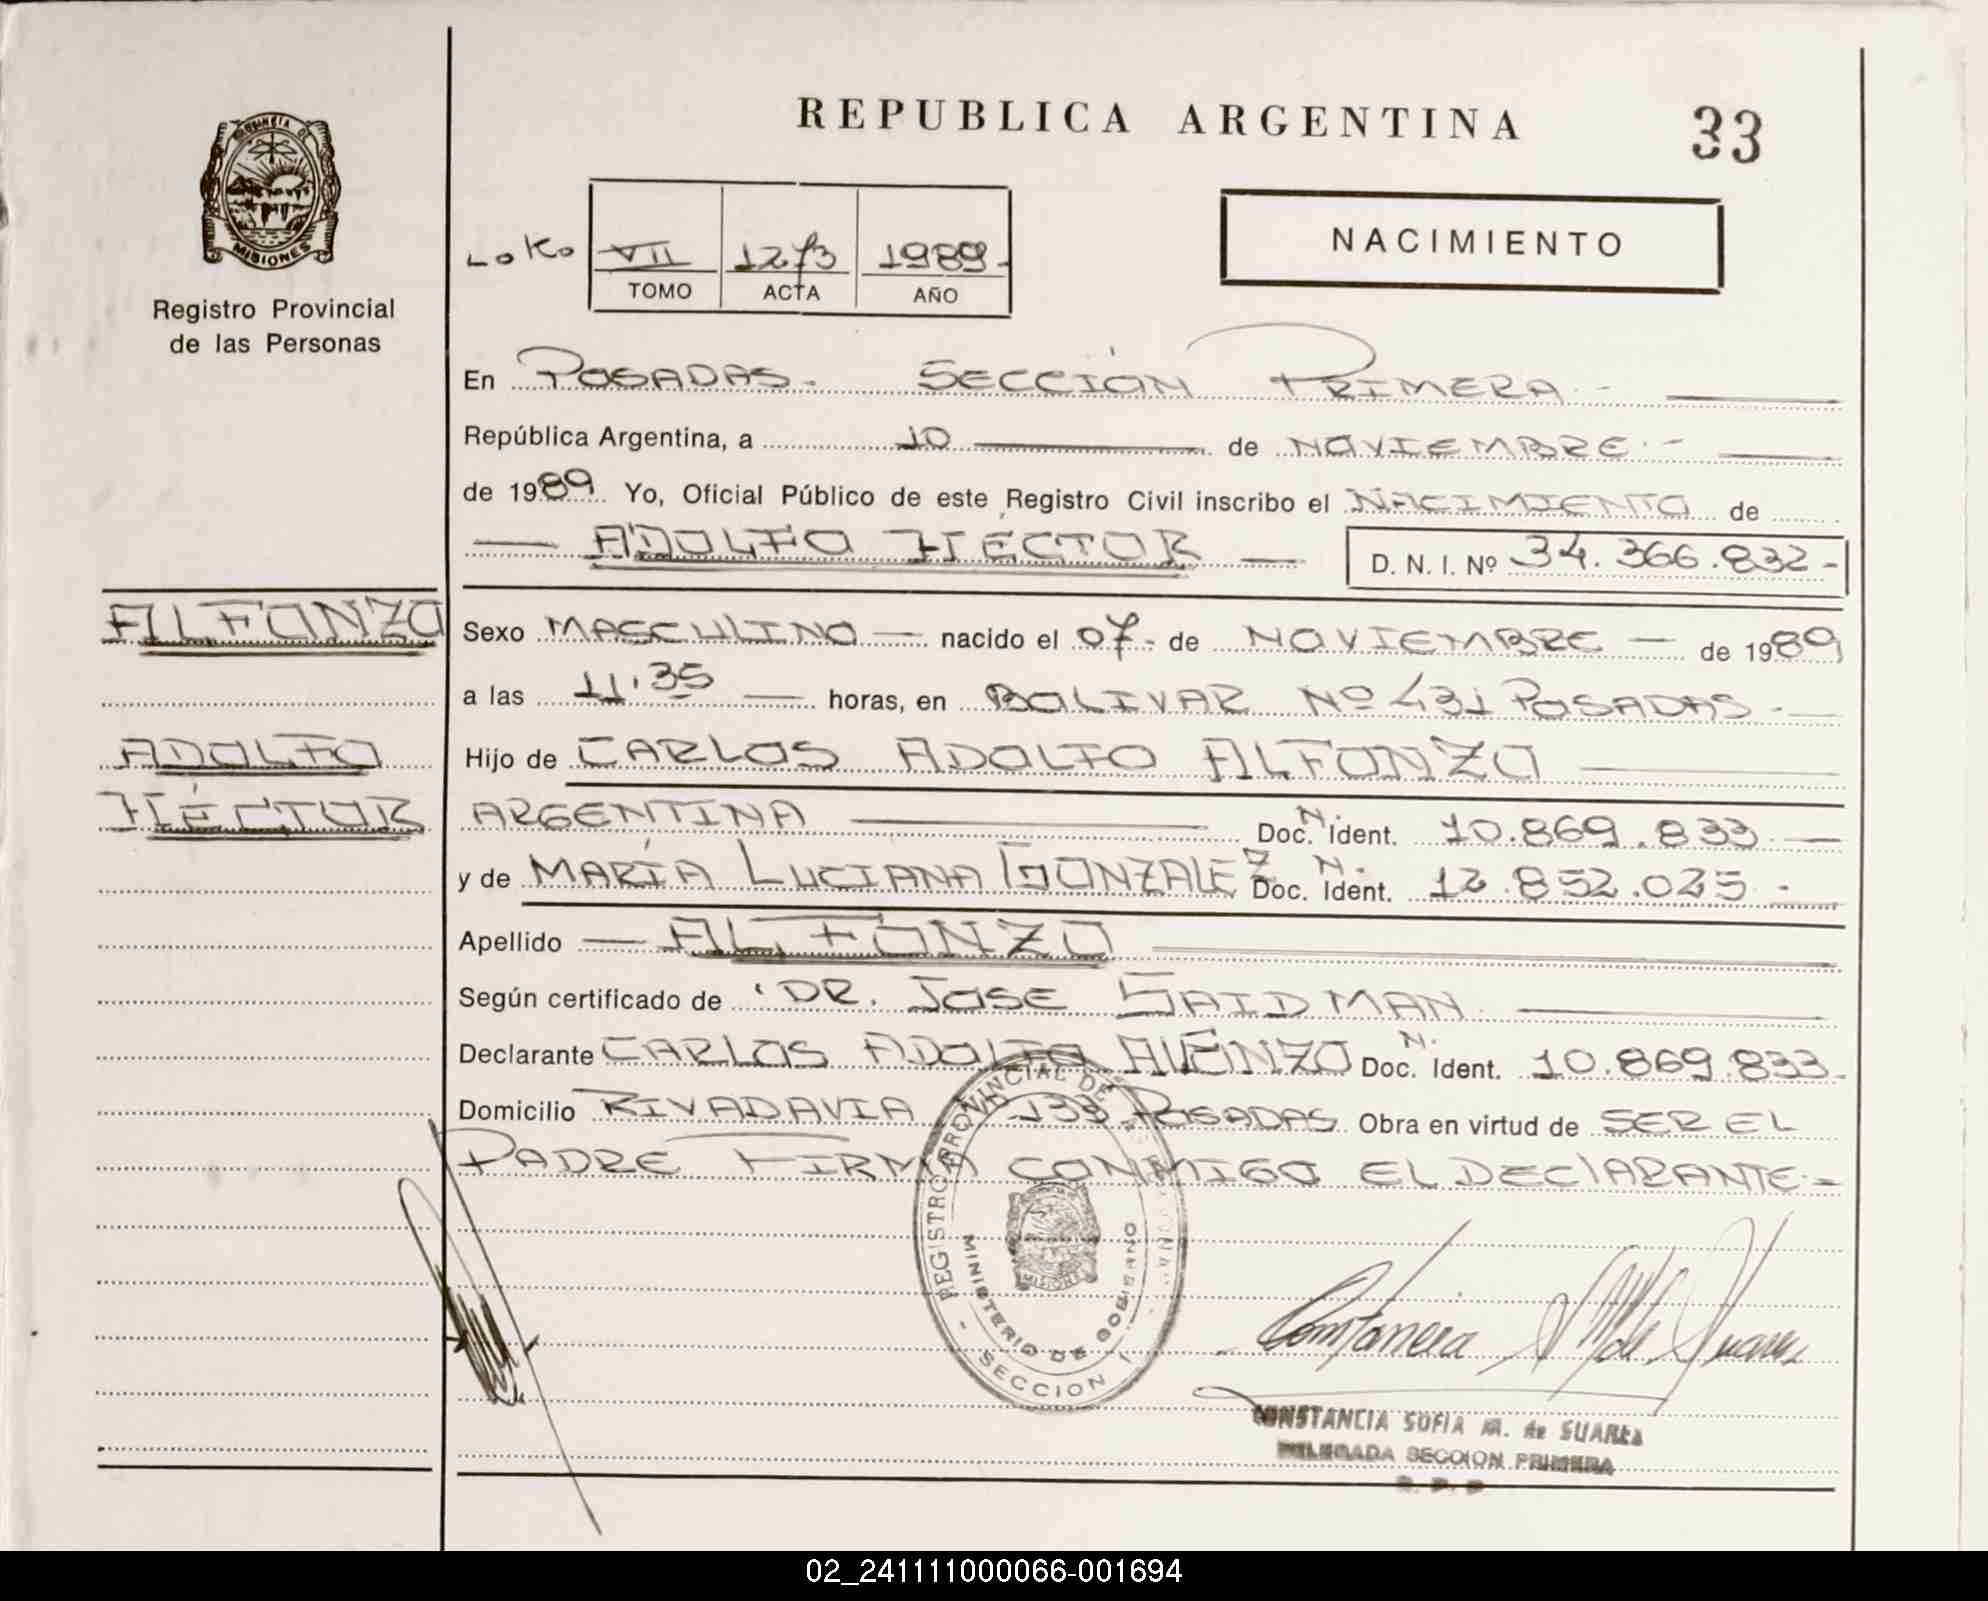 REPUBLICA ARGENTINA
33
PROVINCIA DE
MISIONES
Registro Provincial
de las Personas
VII 1273 1989-
TOMO ACTA AÑO
NACIMIENTO
En POSADAS.- SECCIÓN PRIMERA.-
República Argentina, a 10 de NOVIEMBRE.-
de 1989. Yo, Oficial Público de este Registro Civil inscribo el NACIMIENTO de
— ADOLFO HÉCTOR — D. N. I. Nº 34.366.832-
ALFONZO
ADOLFO
HÉCTOR
Sexo MASCULINO — nacido el 07- de NOVIEMBRE — de 1989
a las 11.35 — horas, en BOLIVAR Nº 431 POSADAS.-
Hijo de CARLOS ADOLFO ALFONZO
ARGENTINA — Doc. N. Ident. 10.869.833 —
y de MARÍA LUCIANA GONZALEZ Doc. N. Ident. 12.852.025.-
Apellido — ALFONZO
Según certificado de DR. JOSE SAIDMAN
Declarante CARLOS ADOLFO ALFONZO Doc. N. Ident. 10.869.833.
Domicilio RIVADAVIA 133 POSADAS Obra en virtud de SER EL
PADRE FIRMA CONMIGO EL DECLARANTE.-
REGISTRO PROVINCIAL DE
MINISTERIO DE GOBIERNO
MISIONES
- SECCION 1
Constancia S M de Suarez
CONSTANCIA SOFIA M. de SUAREZ
DELEGADA SECCION PRIMERA
02_241111000066-001694